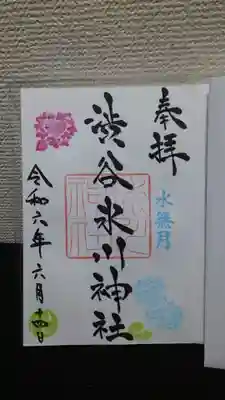 奉拝
水無月
渋谷氷川神社
令和六年六月十四日